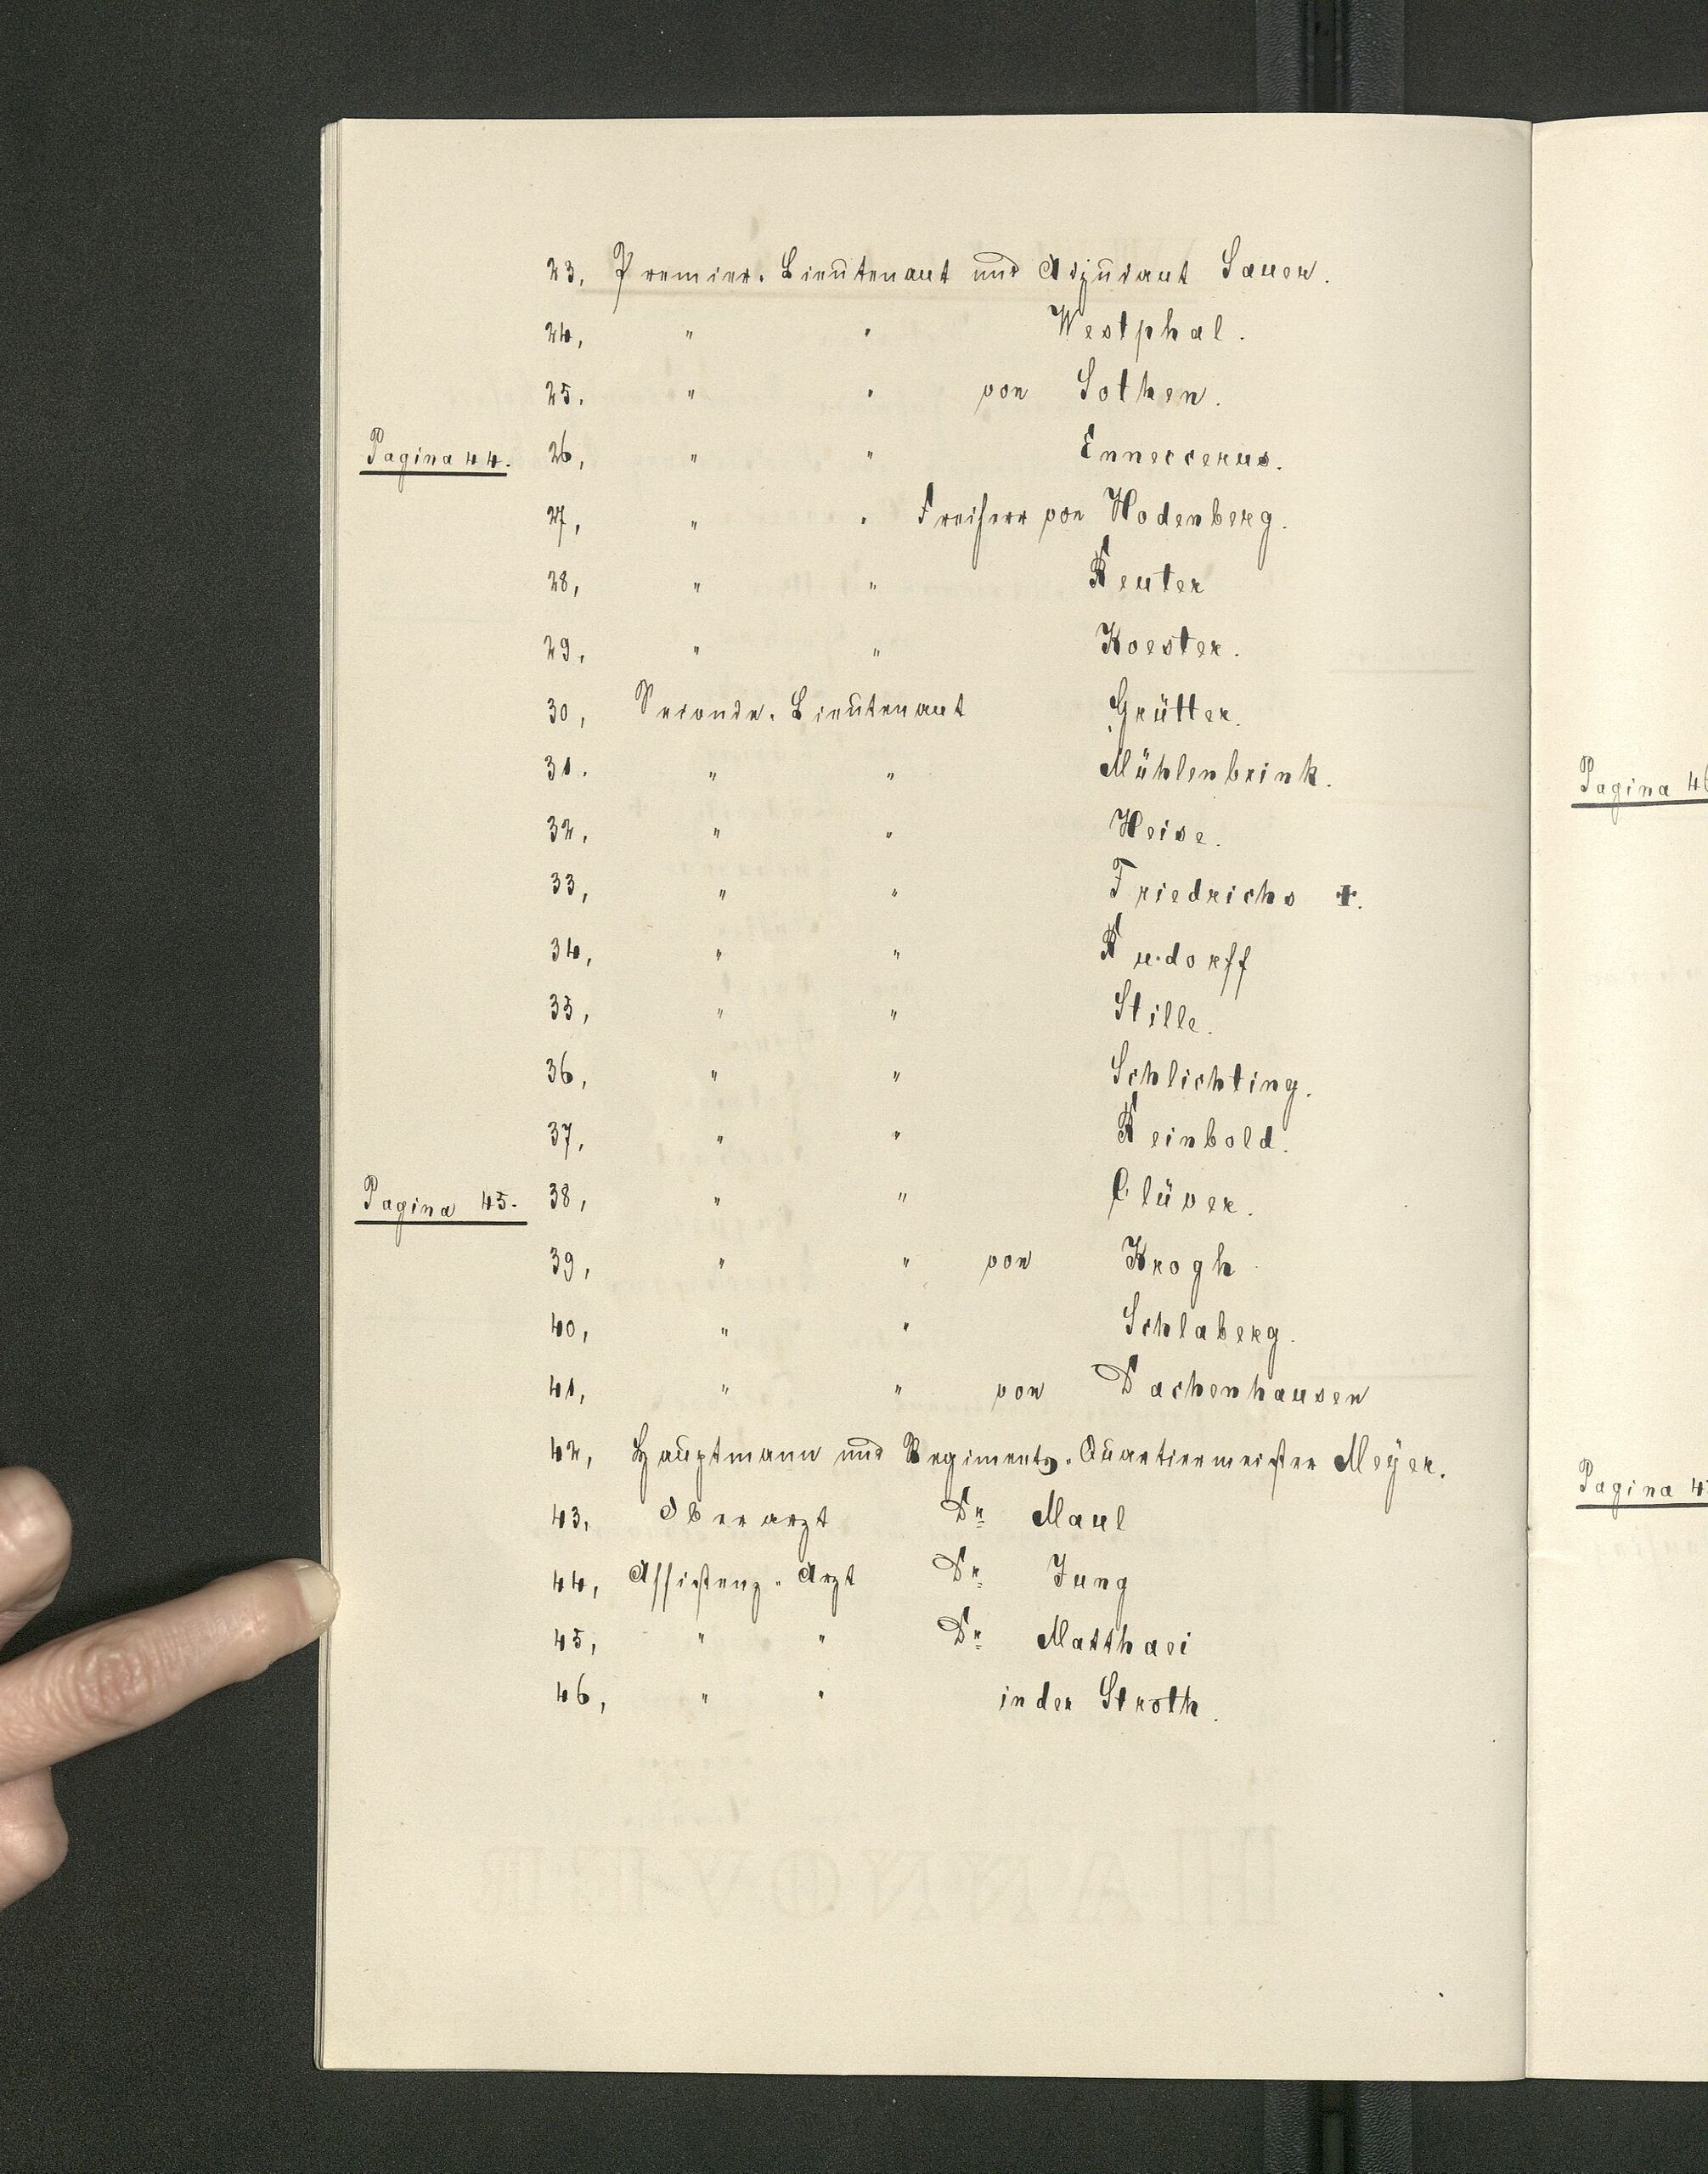 23, Premier-Lieutenant und Adjudant Sauer.
24, " " Westphal.
25. " " von Sothen.
Pagina 44. 26, " " Enneccerus.
27, " " Freiherr von Hodenberg.
28, " " Reuter
29, " " Koester.
30, Seconde-Lieutenant Grütter.
31. " " Mühlenbrink.
32, " " Heise.
33, " " Friedrichs +.
34, " " Rudorff
35, " " Stille.
36, " " Schlichting.
37, " " Reinbold.
Pagina 45. 38, " " Clüver.
39, " " von Krogh
40, " " Schlaberg.
41, " " von Dachenhausen
42, Hauptmann und Regiments-Quartiermeister Meÿer.
43, Oberarzt Dr Maul
44, Assistenz-Arzt Dr. Jung
45, " " Dr Matthaei
46, " " in der Stroth.
Pagina 46
Pagina 4